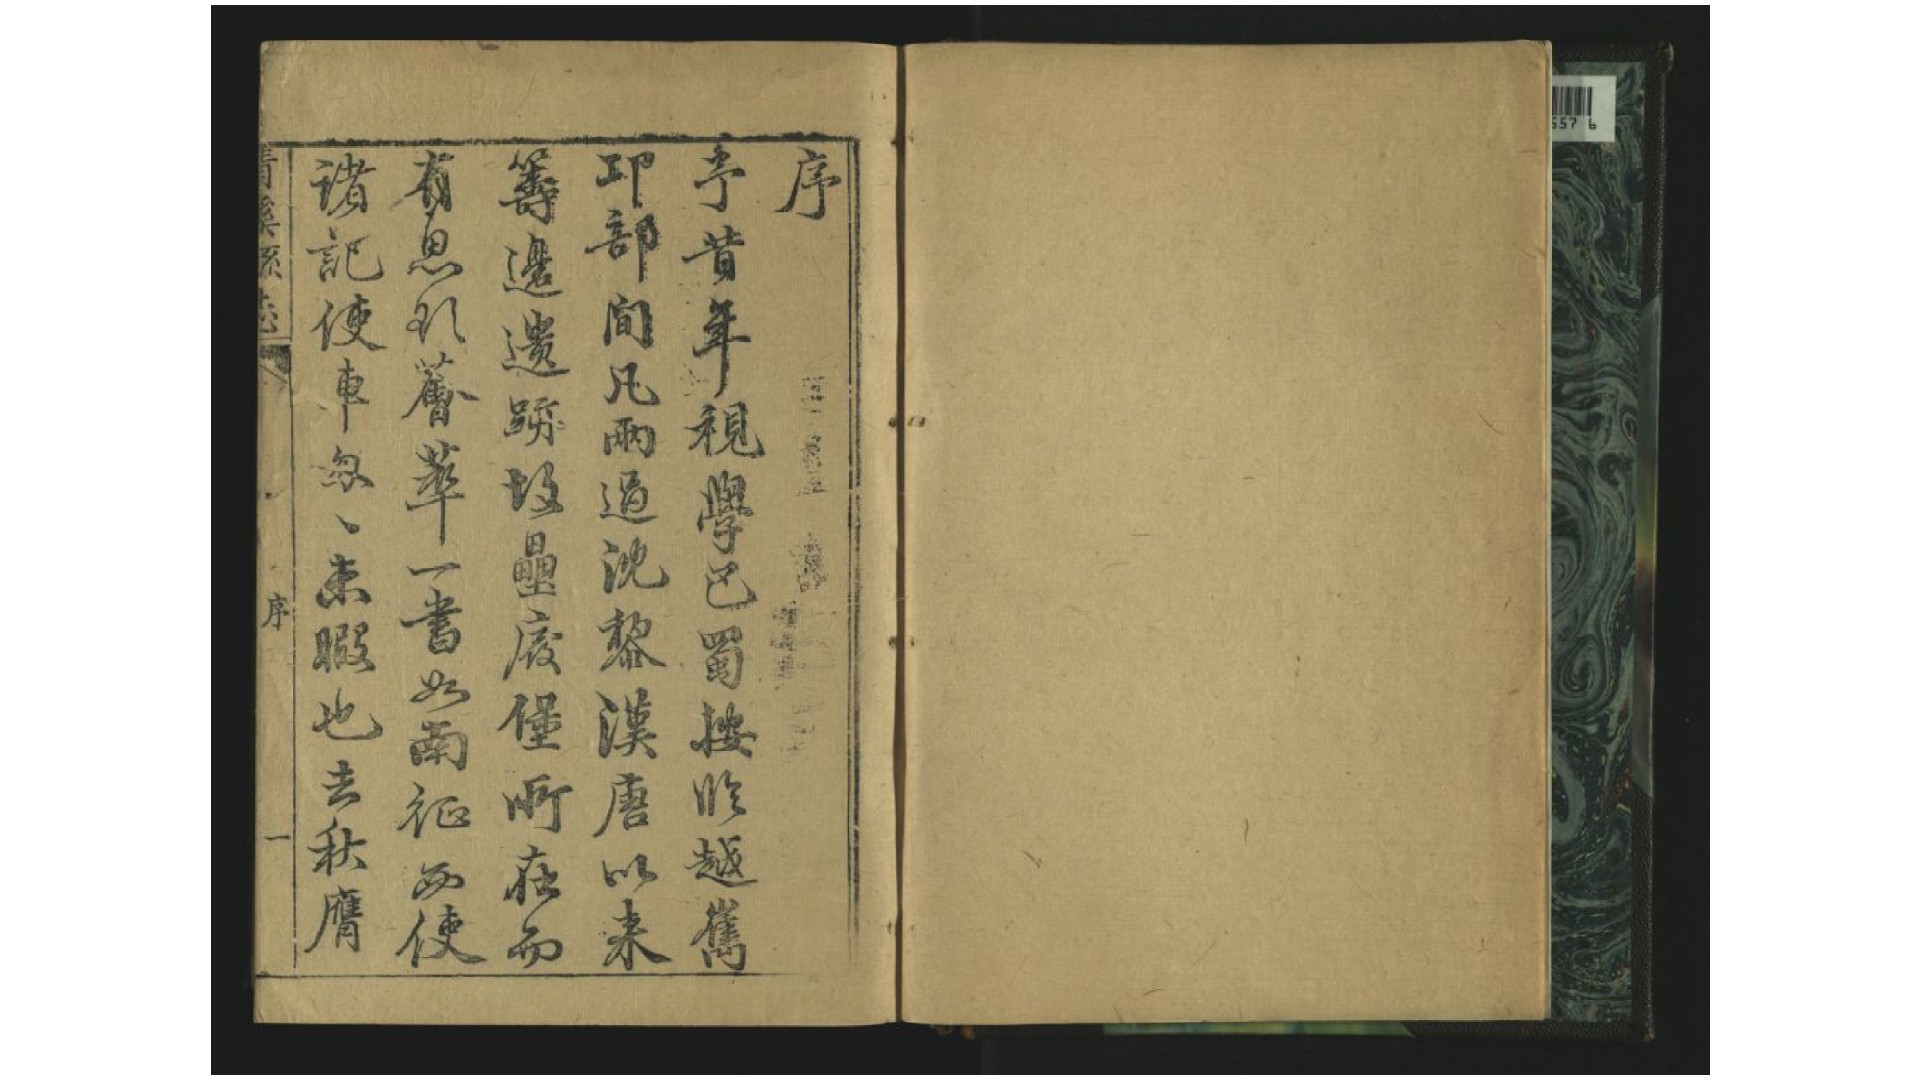 序
予昔年視學巴蜀按臨越嶲
邛部間凡兩過沈黎漢唐以來
籌邊遺跡故壘廢堡所在而
有思欲薈萃一書如南征西使
諸記使車匆〻未暇也去秋膺
清溪縣志
序
一
557 6